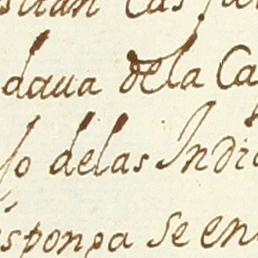 sitan las
daua dela Ca
jo delas Indi
sponga Se en